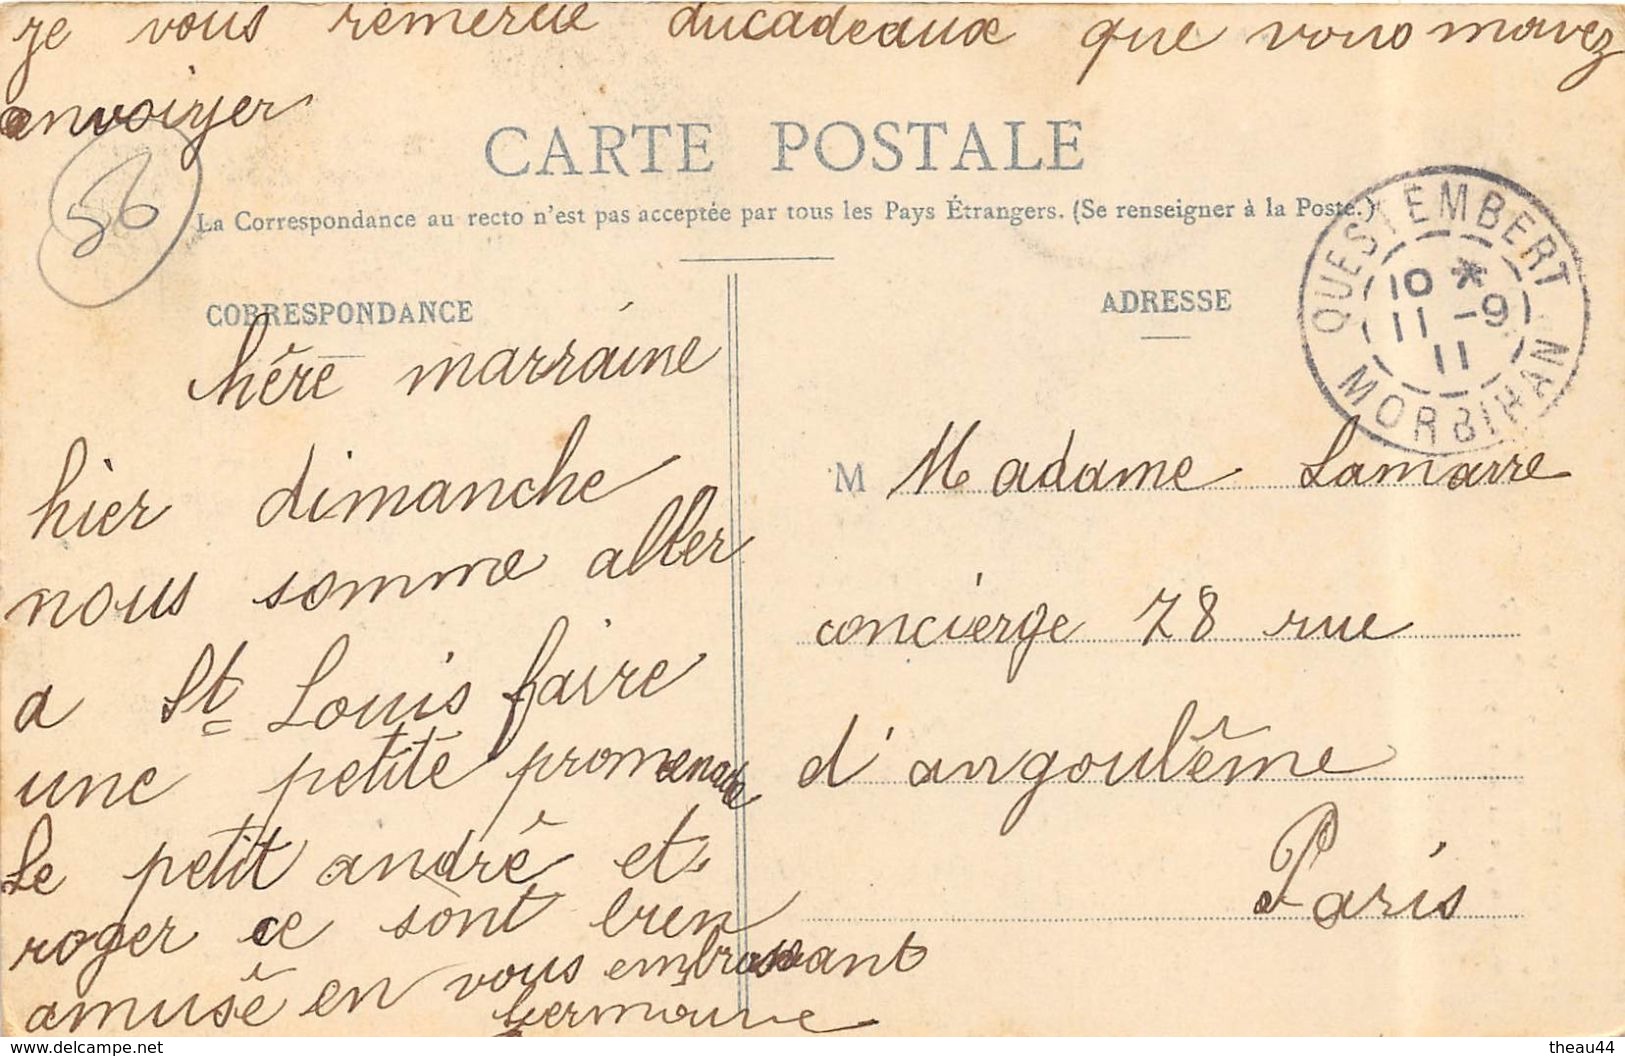 je vous remercie ducadeaux que vous mavez
envoiyer
56
CARTE POSTALE
La Correspondance au recto n'est pas acceptée par tous les Pays Étrangers. (Se renseigner à la Poste.)
QUESTEMBERT
10 *
11 -9
11
MORBIHAN
CORRESPONDANCE
hêre marraine
hier dimanche
nous somme aller
a St Louis faire
une petite promenade
Le petit andré et
roger ce sont bien
amusé en vous embrassant
ADRESSE
M Madame Lamarre
concierge 78 rue
d'angoulême
Paris
delcampe.net
theau44